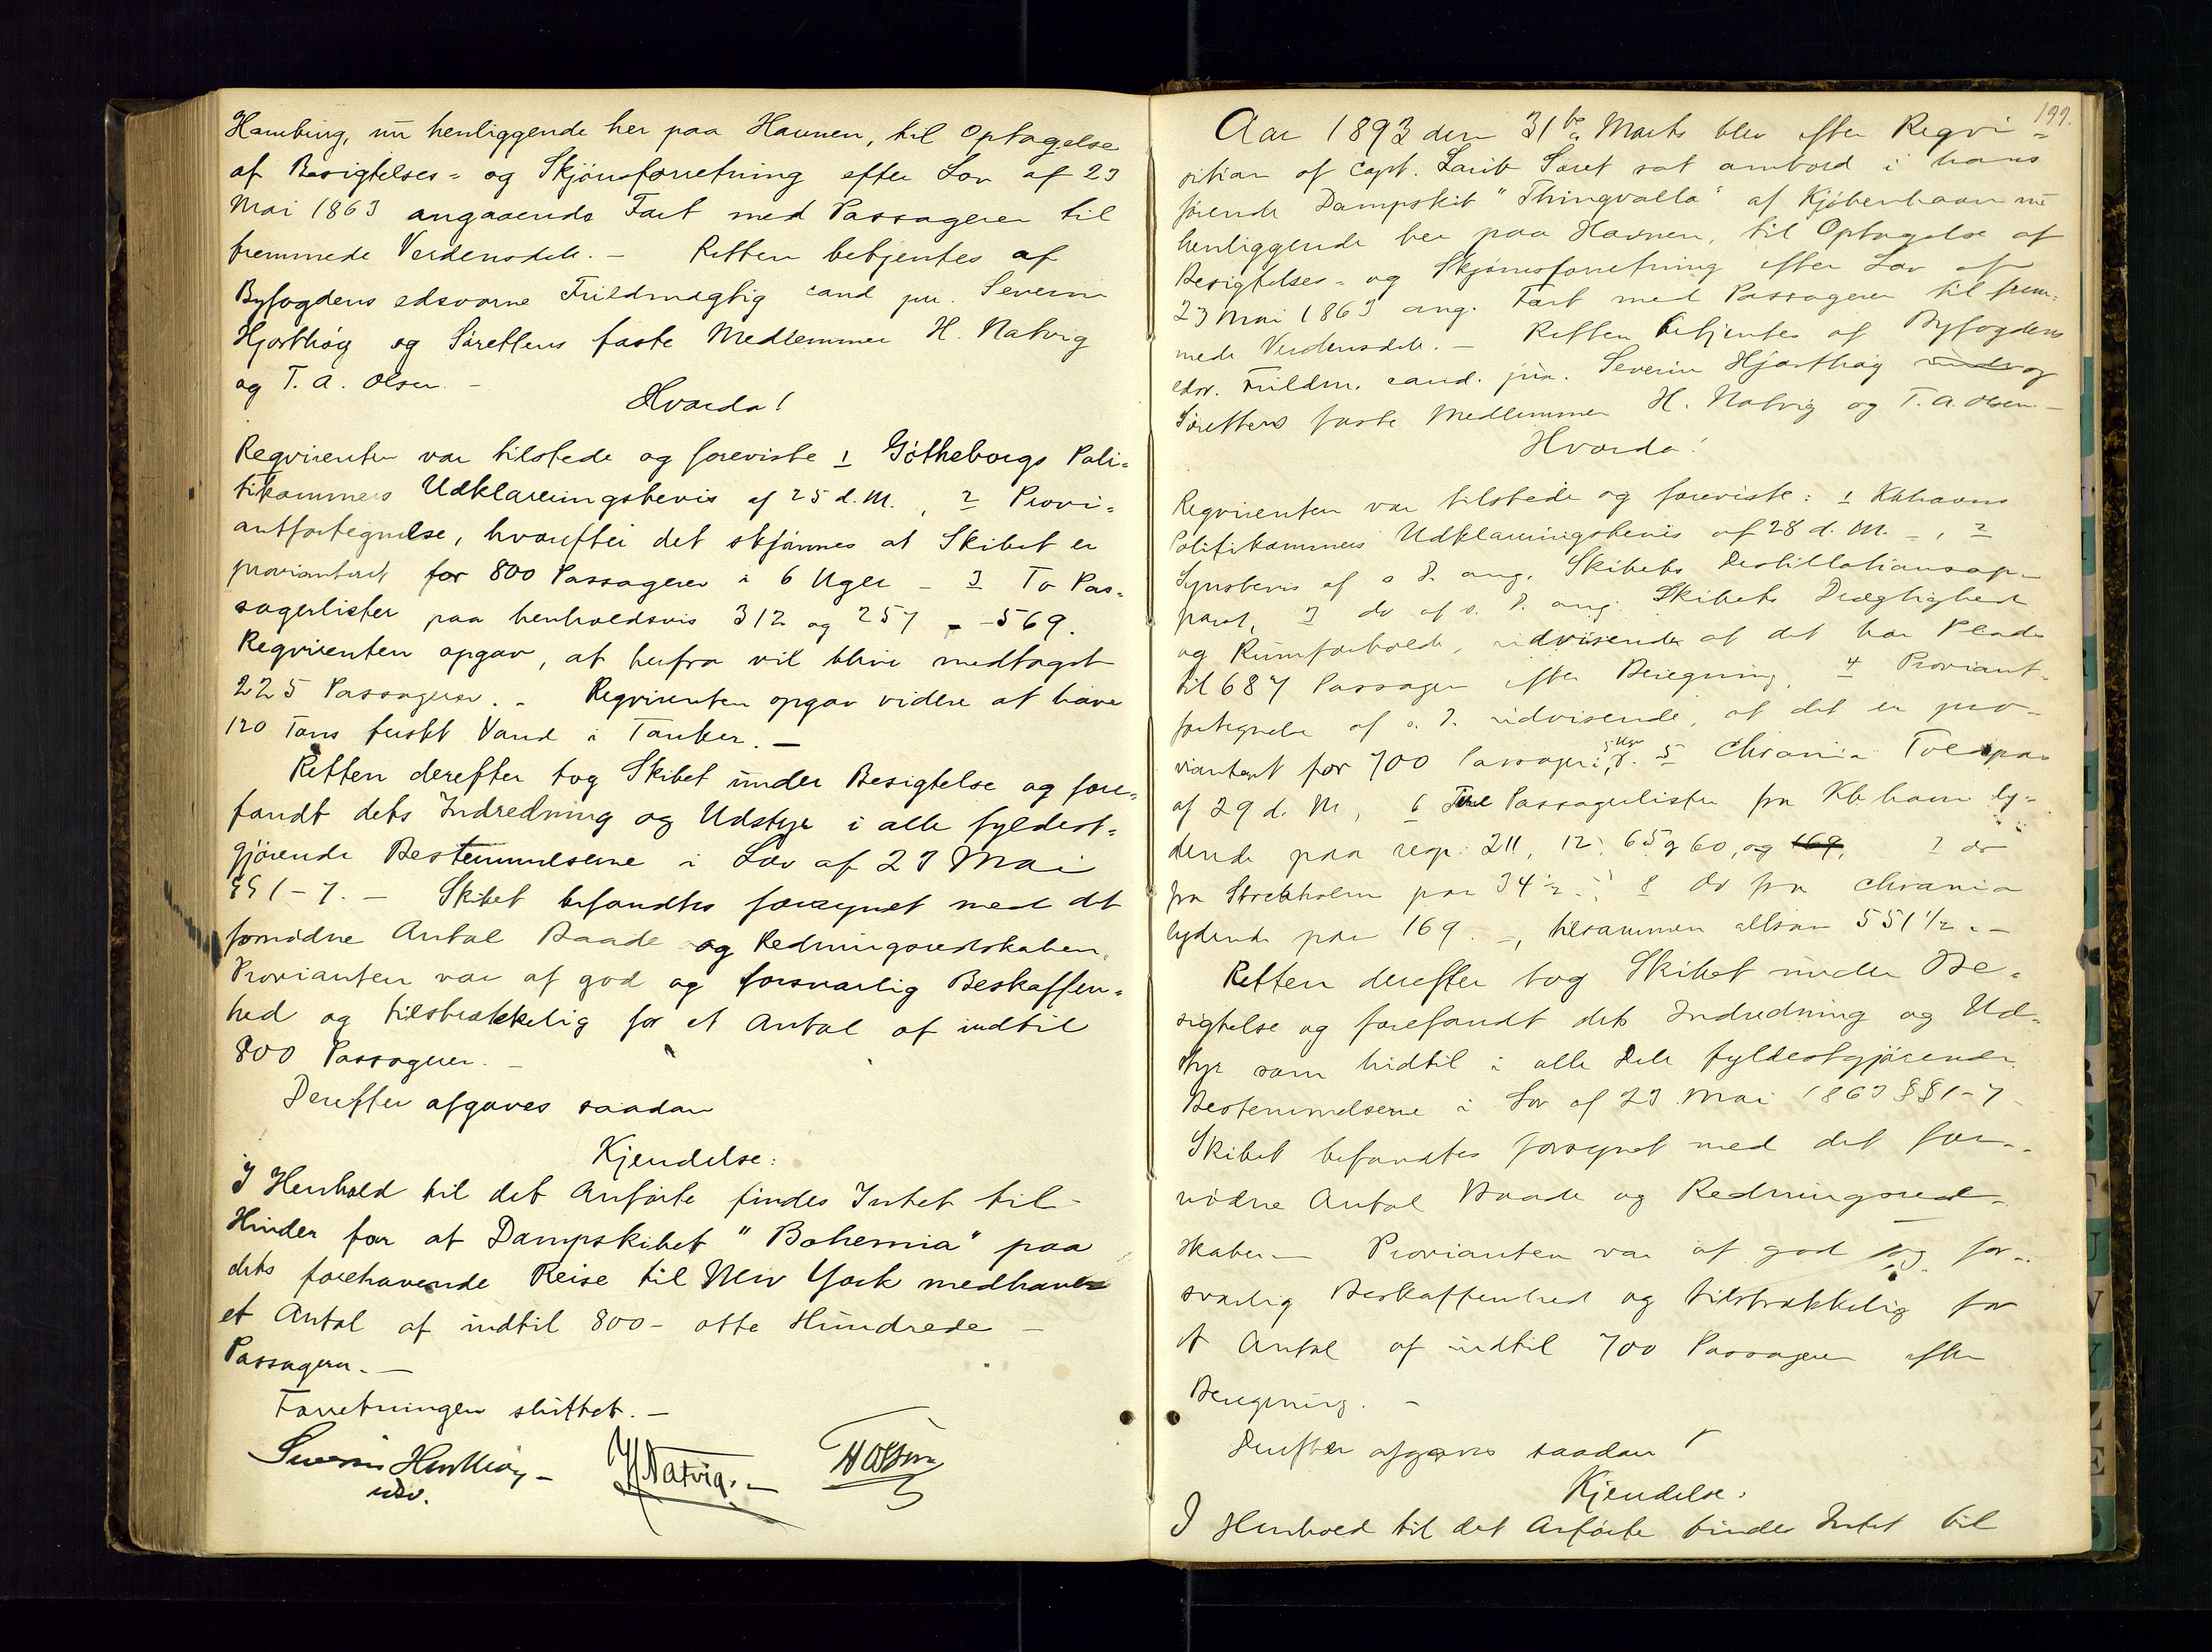 Hamburg, nu henliggende her paa Havnen, til Optagelse
af Besigtelses- og Skjønsforretning efter Lov af 23
Mai 1863 angaaende Fart med Passagerer til
fremmede Verdensdele. – Retten betjentes af
Byfogdens edsvorne Fuldmægtig cand jur. Severin
Hjorthøy og Sørettens faste Medlemmer H. Natvig
og T. A. Olsen –
Hvorda!
Reqvirenten var tilstede og foreviste 1 Götheborgs Poli-
tikammers Udklareringsbevis af 25 d. M., 2 Provi-
antfortegnelse, hvorefter det skjønnes at Skibet er
provianteret for 800 Passagerer i 6 Uger – 3 To Pas-
sagerlister paa henholdsvis 312 og 257 – 569.
Reqvirenten opgav, at herfra vil blive medtaget
225 Passagerer. – Reqvirenten opgav videre at have
120 Tons ferskt Vand i Tanker. –
Retten derefter tog Skibet under Besigtelse og fore-
fandt dets Indredning og Udstyr i alle fyldest-
gjørende Bestemmelserne i Lov af 23 Mai
§§ 1-7. – Skibet befandtes forsynet med det
fornødne Antal Baade og Redningsredskaber.
Provianten var af god og forsvarlig Beskaffen-
hed og tilstrækkelig for et Antal af indtil
800 Passagerer. –
Derefter afgaves saadan
Kjendelse:
I Henhold til det Anførte findes Intet til
Hinder for at Dampskibet "Bohemia" paa
dets forehavende Reise til New York medhaver
et Antal af indtil 800 – otte Hundrede –
Passagerer. –
Forretningen sluttet. –
Severin Hjorthøy –
edsv.
H Natvig. –
T A Olsen
199.
Aar 1893 den 31te Marts blev efter Reqvi-
sition af Capt. Laub Søret sat ombord i hans
førende Dampskib "Thingvalla" af Kjøbenhavn nu
henliggende her paa Havnen, til Optagelse af
Besigtelses- og Skjønsforretning efter Lov af
23 Mai 1863 ang. Fart med Passagerer til frem-
mede Verdensdele. – Retten betjentes af Byfogdens
edsv. Fuldm. cand. jur. Severin Hjorthøy og
Sørettens faste Medlemmer H. Natvig og T. A. Olsen –
Hvorda!
Reqvirenten var tilstede og foreviste: 1 Kbhavns
Politikammers Udklareringsbevis af 28 d. M. –, 2
Synsbevis af s. D. ang. Skibets Destillationsap-
parat, 3 do af s. D. ang. Skibets Drægtighed
og Rumforhold, udvisende at det har Plads
til 687 Passager efter Beregning, 4 Proviant-
fortegnelse af s. D. udvisende, at det er pro-
vianteret for 700 Passager i 5 Uger, 5 Chrania Toldpas
af 29 d. M., 6 Passagerlister fra Kbhavn ly-
dende paa resp. 211, 12, 65 og 60, og 169, 7 do
fra Stockholm paa 34 ½ –, 8 do fra Chrania
lydende paa 169. –, tilsammen altsaa 551 ½. –
Retten derefter tog Skibet under Be-
sigtelse og forefandt dets Indredning og Ud-
styr som hidtil i alle Dele fyldestgjørende
Bestemmelserne i Lov af 23 Mai 1863 §§ 1-7 –
Skibet befandtes forsynet med det for-
nødne Antal Baade og Redningsred-
skaber – Provianten var af god og for-
svarlig Beskaffenhed og tilstrækkelig for
et Antal af indtil 700 Passagerer efter
Beregning. –
Derefter afgaves saadan
Kjendelse.
I Henhold til det Anførte findes Intet til